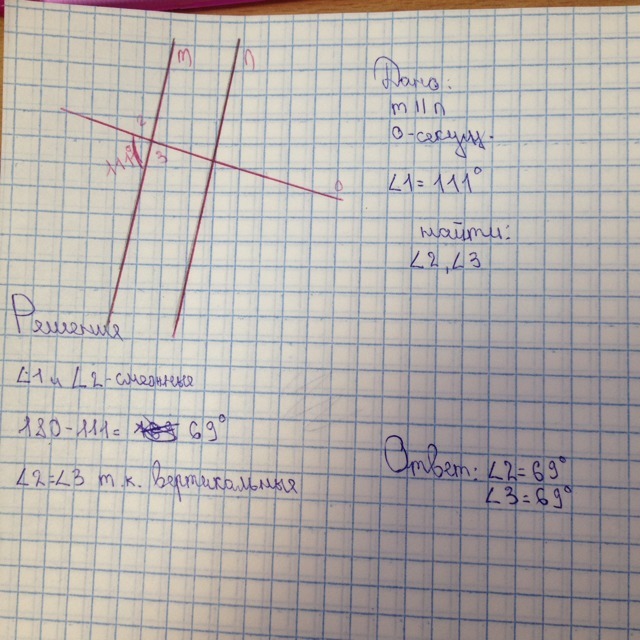 m n
2
111° 3
o
Дано:
m || n
o-секущ.
∠1 = 111°
найти:
∠2, ∠3
Решения
∠1 и ∠2-смежные
180-111= 69°
∠2=∠3 т.к. вертикальные
Ответ: ∠2=69°
∠3=69°